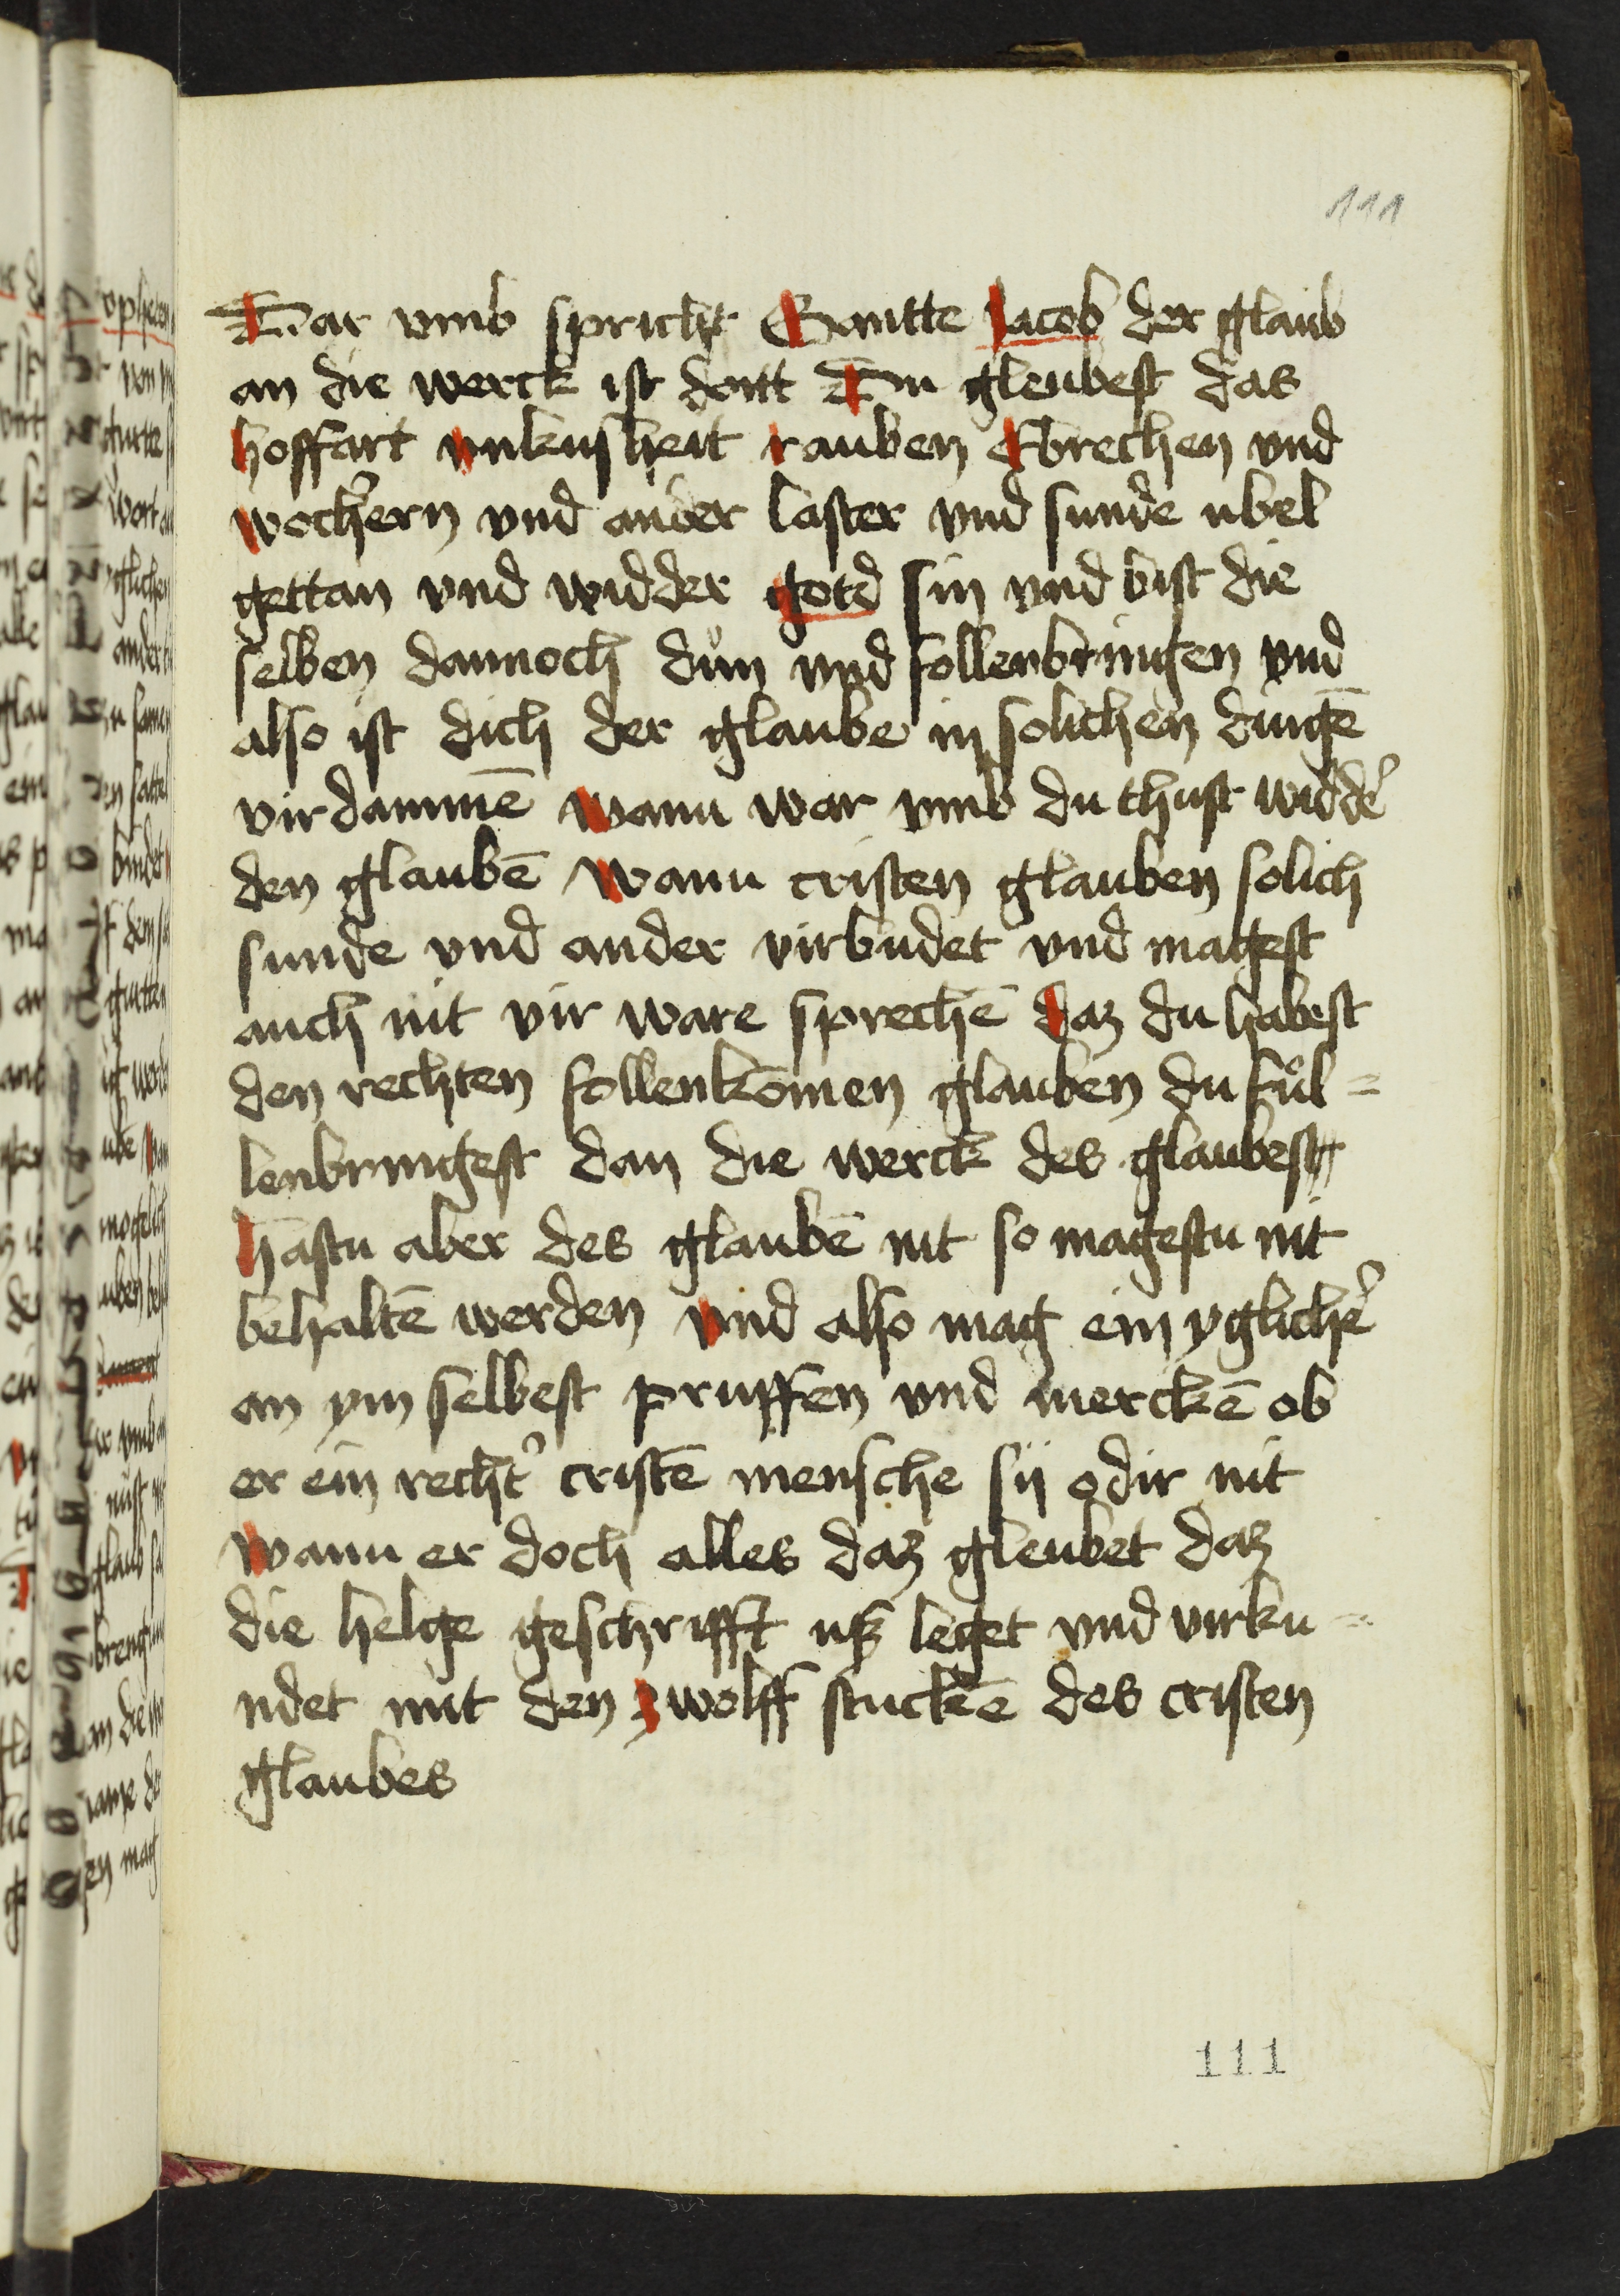 111
Dar vmb spricht Santte Jacob der glaub
an die werck ist dott Du gleubest das
hoffart vnkusheit rauben Ebrechen vnd
wochern vnd ander laster vnd sunde ubel
gettan vnd widder gotd sin vnd bist die
selben dannoch dun vnd follenbringen vnd
also ist dich der glaube in solichen dingē
virdammē wann war vmb du thust widdē
den glaubē wann cristen glauben solich
sunde vnd ander virbudet vnd magest
auch nit vir ware sprechē daz du habest
den rechten follenkomen glauben du ful=
lenbringest dan die werck des glaubest
hastu aber des glaubē nit so magestu nit
behaltē werden vnd also mag ein yglichē
an ym selbest pruffen vnd merckē ob
er ein recht' cristē mensche sij odir nit
wann er doch alles daz gleubet daz
die helge geschrifft uß leget vnd virku=
ndet mit den zwolff stuckēe des cristen
glaubes
111